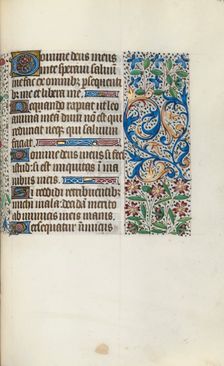 Domine deus meus
in te speravi salvū
me fac ex omnibꝫ ꝑsequenti
bꝫ me et libera me.
Ne quando rapiat ut leo
animā meā dum non est qui
redimat neqꝫ qui saluum
faciat.
Domine deus meus si feci
istud: si est iniquitas ī ma
nibus meis.
Si reddidi retribuentibꝫ
michi mala: decidā merito
ab inimicis meis inanis.
Persequatur inimicus